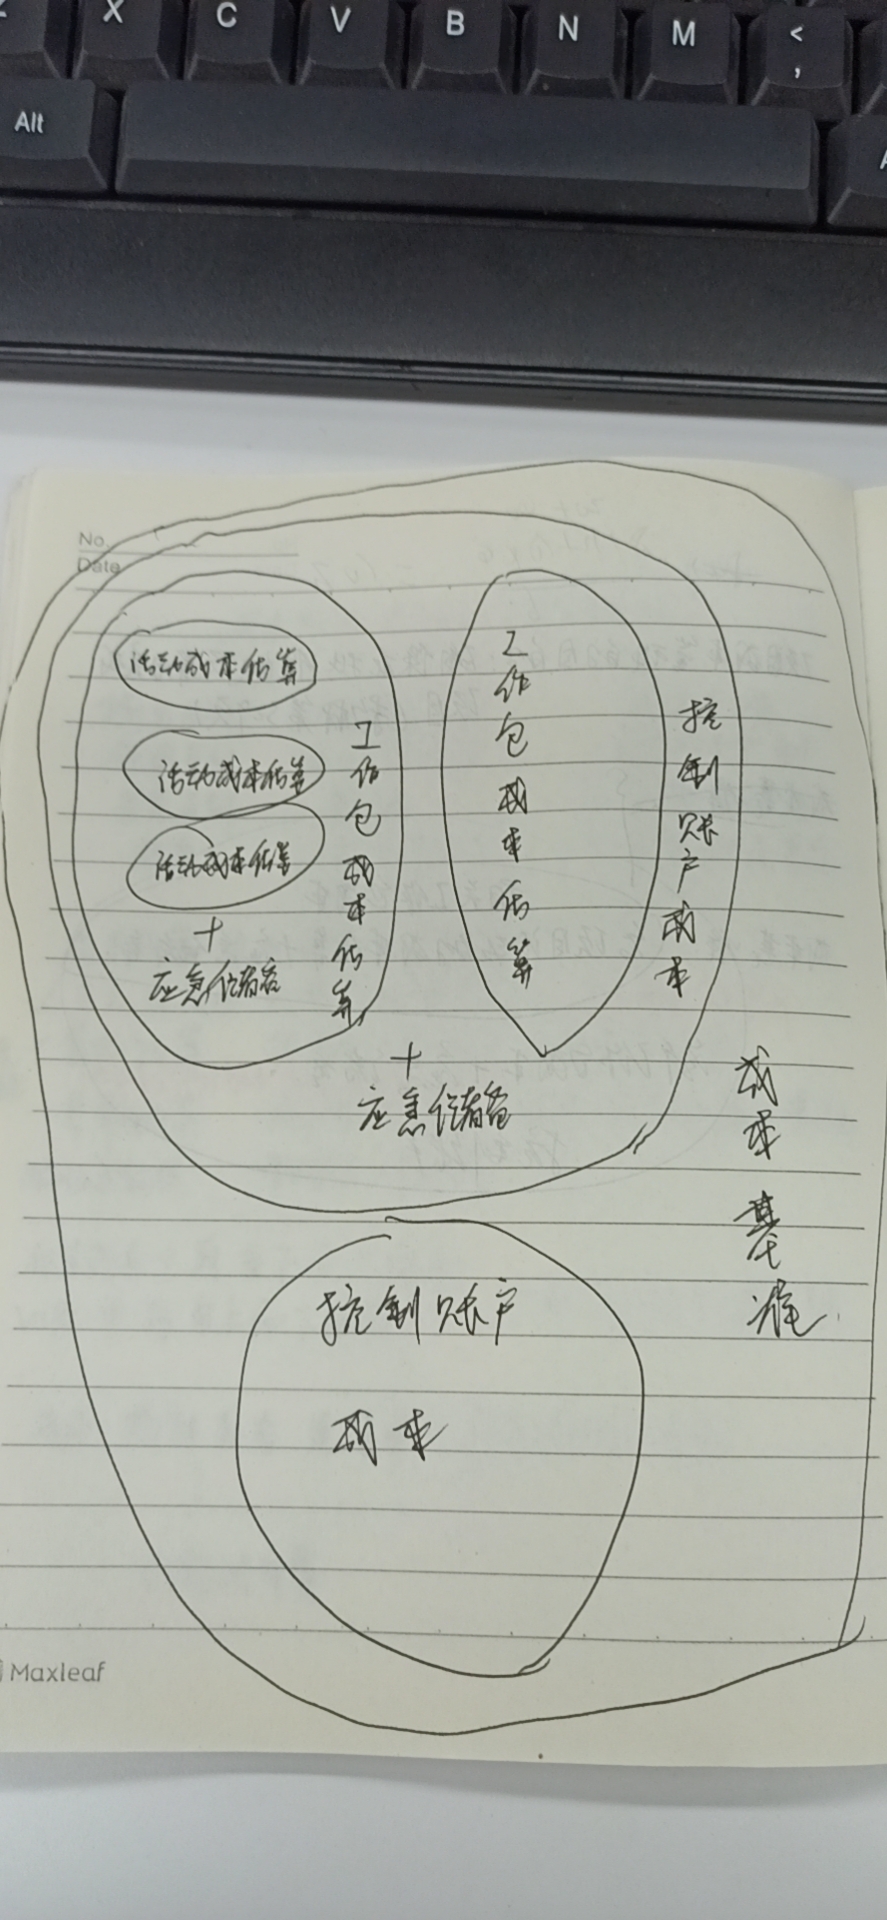 X C V B N M < ,
Alt
No.
Date
活动成本估算
活动成本估算
活动成本估算
+
应急储备
工作包成本估算
工作包成本估算
控制账户成本
+
应急储备
成本基准
控制账户
成本
Maxleaf